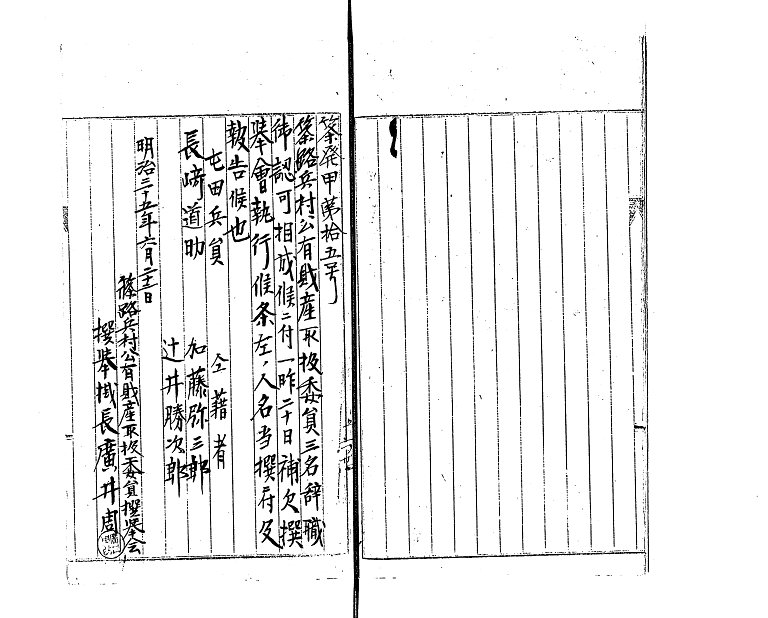 篠発甲第拾五号
篠路兵村公有財産取扱委員三名辞職
御認可相成候ニ付一昨二十日補欠撰
挙會執行候条左ノ人名当撰府及
報告候也
屯田兵員
仝籍者
長﨑道助
加藤弥三郎
辻井勝次郎
明治三十五年六月二十二日
篠路兵村公有財産取扱委員撰挙会
撰挙掛長廣井周